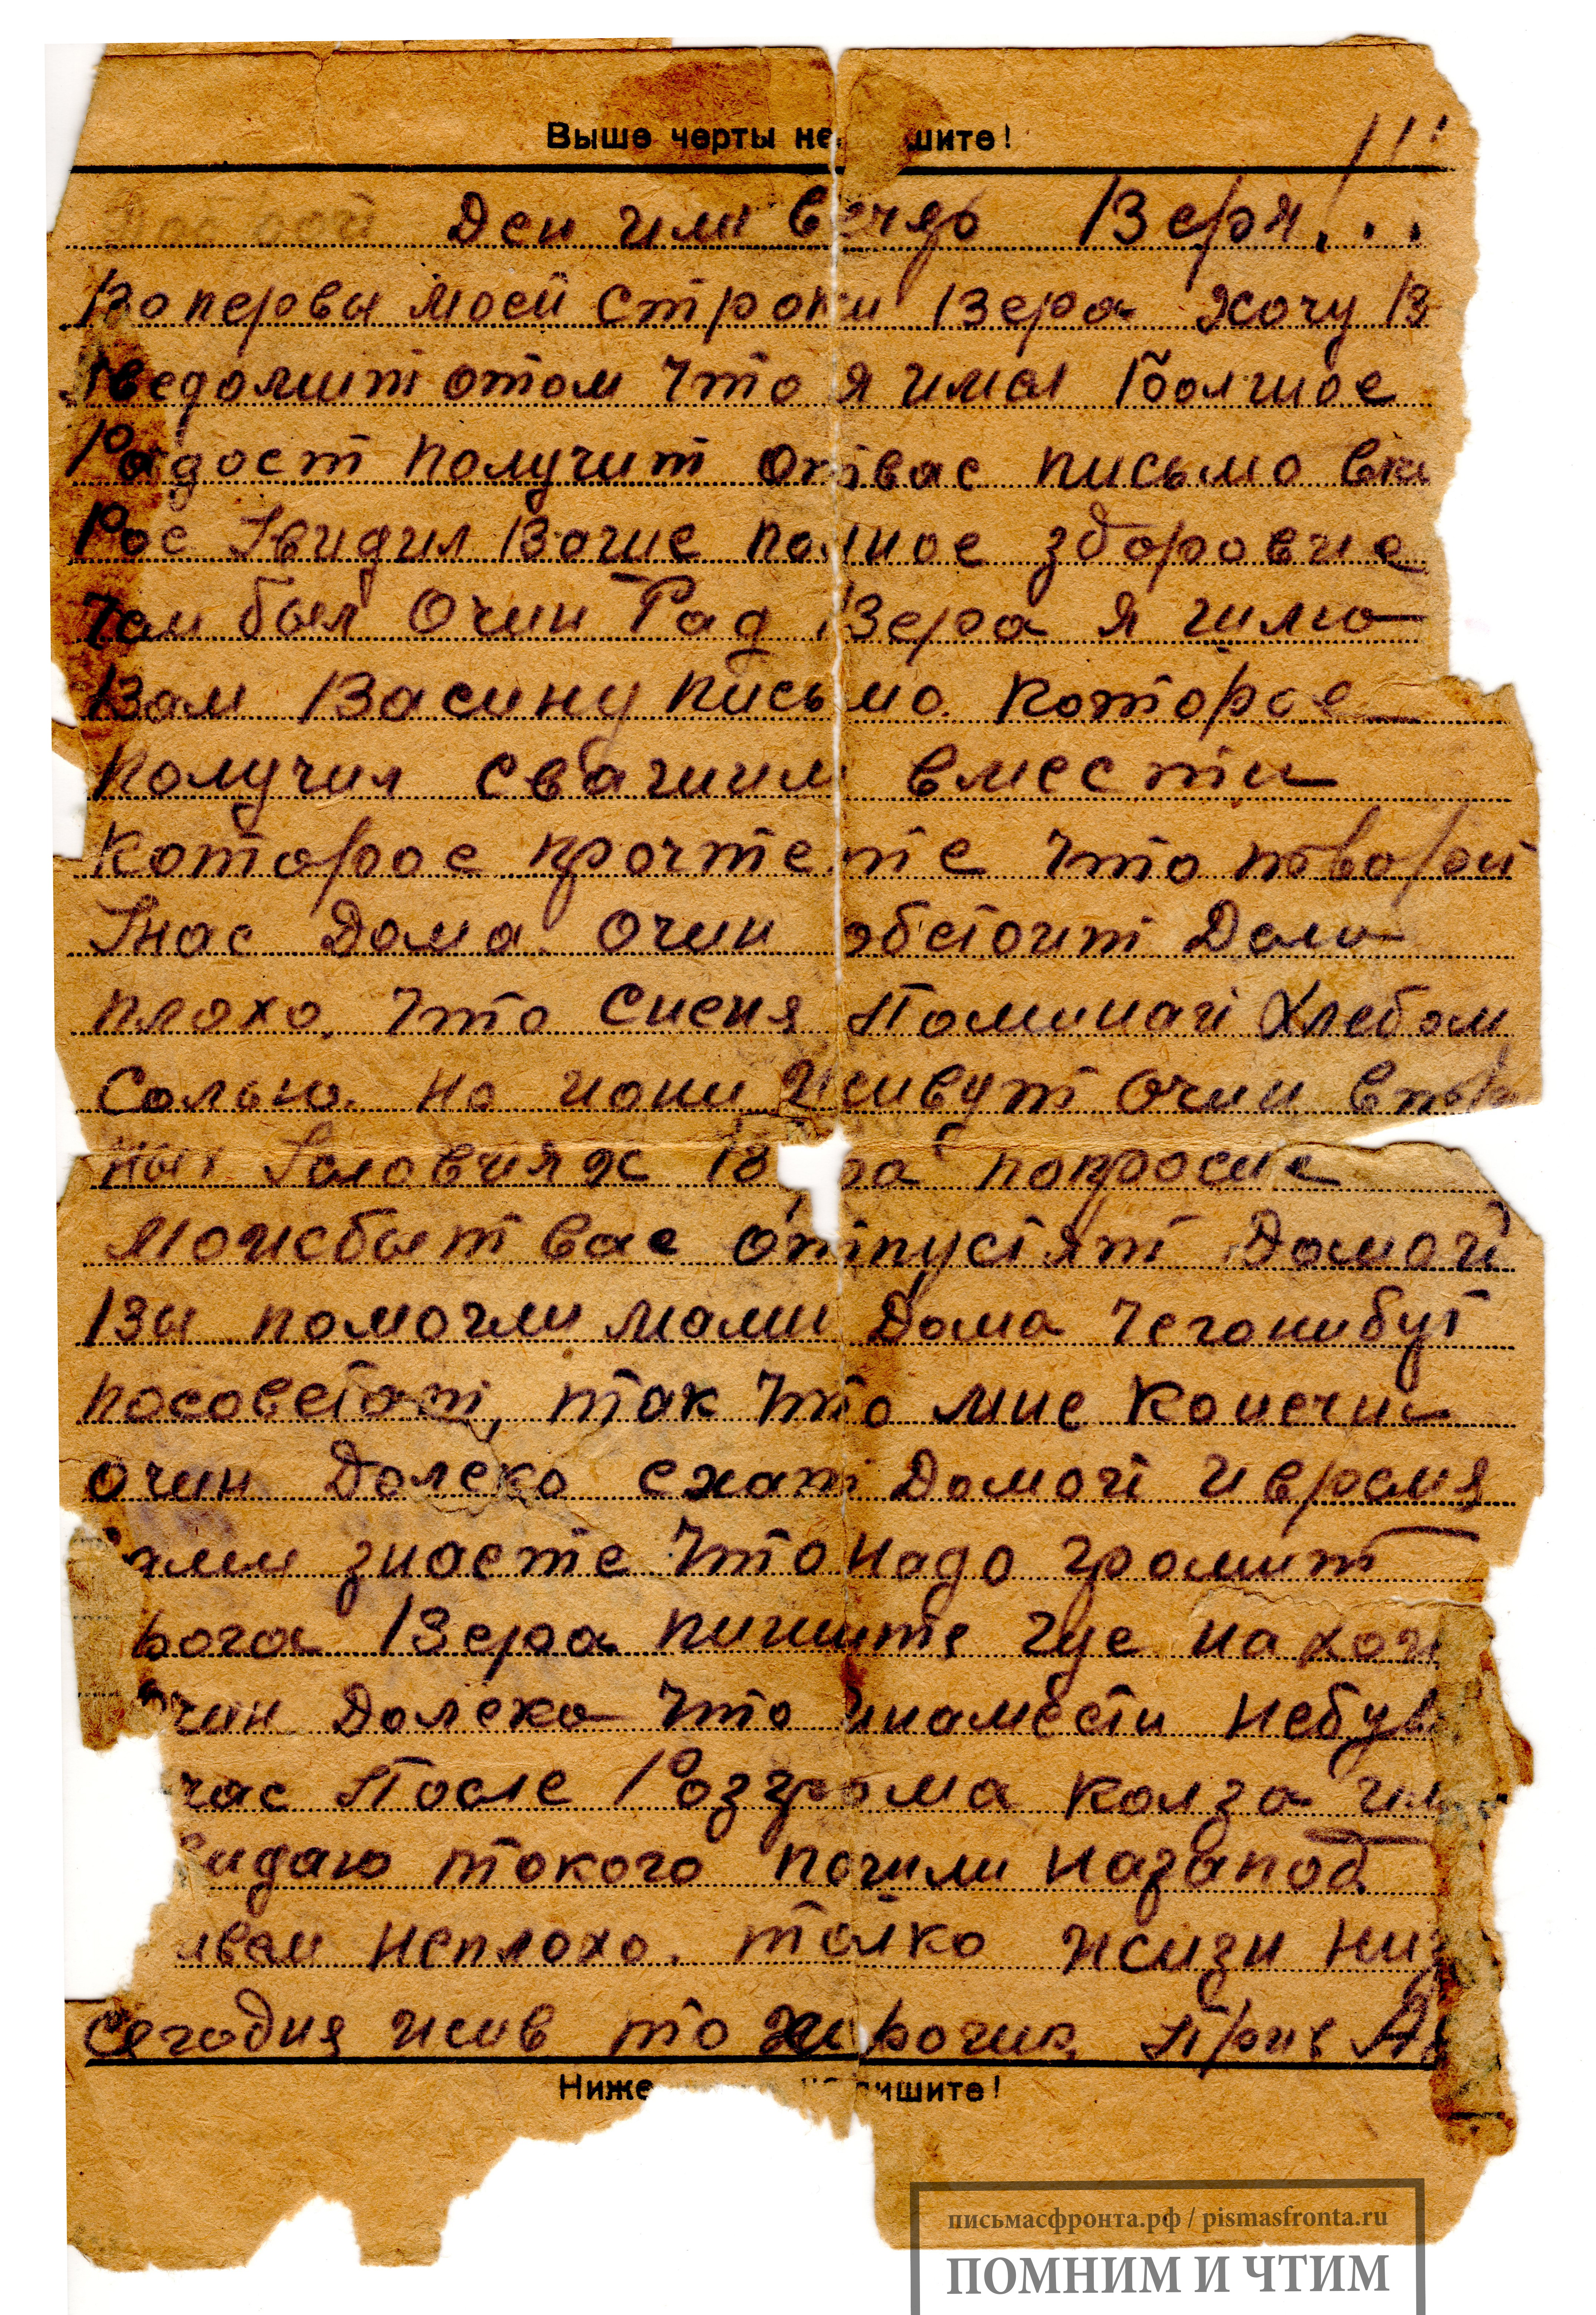 Выше черты не шите!
Ден или вечяр Веря!..
Во первы моей строки Вера хочу В
Уведомит отом что я имел Болшое
Радост получит отвас письмо вки
Рое Увидил Ваше полное здоровие
там был Очин Рад Вера я шлю
Вам Васину письмо Которое
получил свашим вмести
Которое прочтете что
Унас Дома очин обстоит Дела
плохо, что сисня Поминай Хлебом
Солью. но иони Живут очин
ных Условиях В ра попросис
можебыт вас отпустят Домой
Вы помогли мами Дома чегонибут
посоветат, так что мне Конечна
очин Далеко ехат Домой и время
ами знаете что надо громит
рога Вера пишите где находи
чин Далеко что инамести небув
час После Розгрома
видаю токого пошли назапод
неплохо. толко жизи низ
Сегодня жив то харошо, Прив
Ниже ишите!
письмасфронта.рф / pismasfronta.ru
ПОМНИМ И ЧТИМ